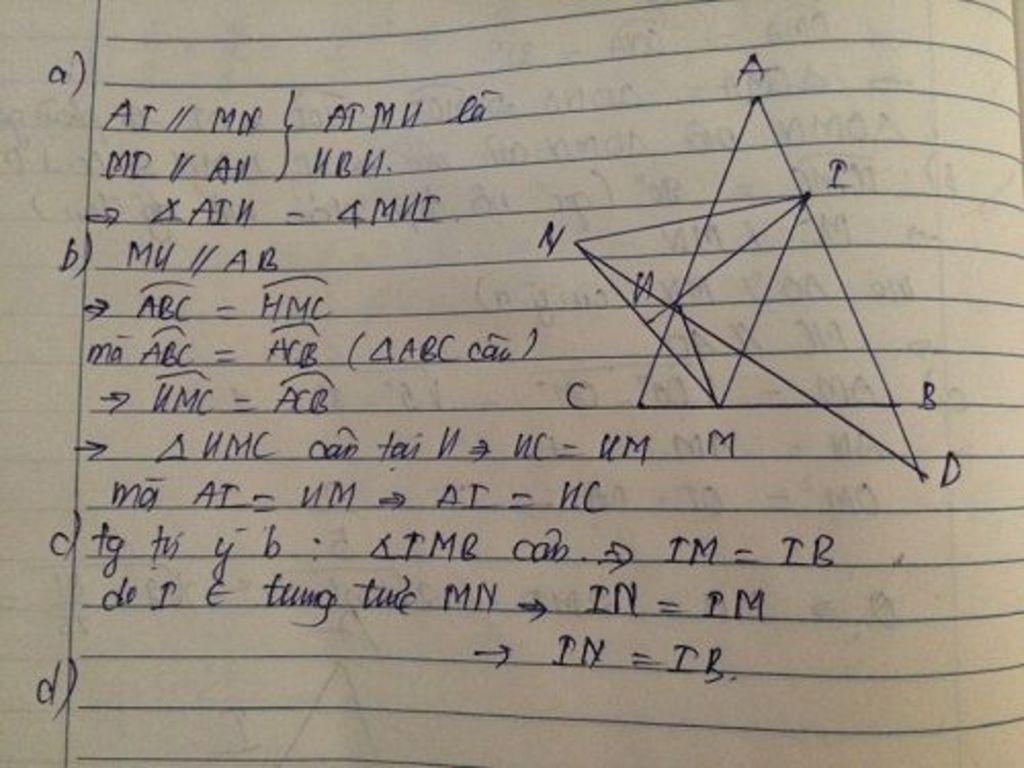 a)
AI // MN } AIMH là
MI // AH } HBH.
→ ∡AIH = ∡MHI
b) MH // AB
→ ABC = HMC
mà ABC = ACB (ΔABC cân)
→ HMC = ACB
→ ΔHMC cân tại H → HC = HM
mà AI = HM → AI = HC
c) tg tự ý b : ∡IMB cân. → IM = IB
do I ∈ trung trực MN → IN = IM
→ IN = IB.
d)
A
I
N
H
C
B
M
D